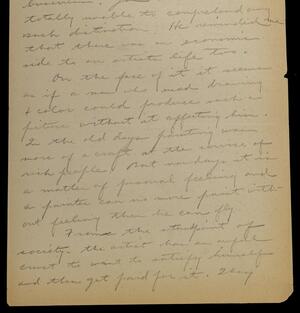 business.
totally unable to comprehend any
such distinction. He reminded me
that there was an economic
side to an artist's life too.
On the face of it it seems
as if a man who used drawing
& color could produce such a
picture without it affecting him.
In the old days painting was
more of a craft at the service of
rich people. But nowdays it is
a matter of personal feeling and
a painter can no more paint with-
out feeling then he can fly
From the standpoint of
society the artist has an awful
crust to want to satisfy himself
and then get paid for it.